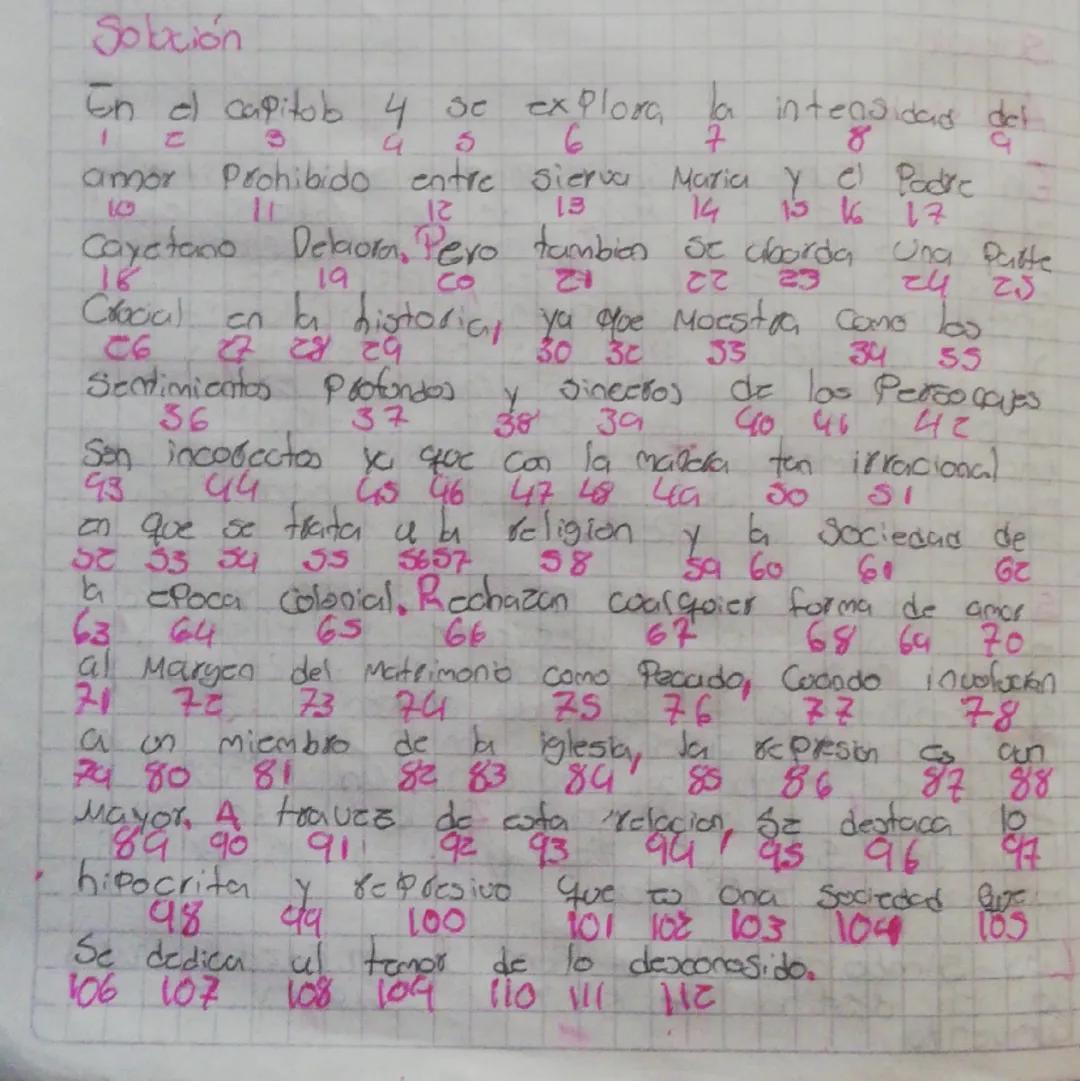 Solución
En el capitulo 4 se explora la intensidad del
1 2 3 4 5 6 7 8 9
amor Prohibido entre sierva Maria y el Padre
10 11 12 13 14 15 16 17
Cayetano Delaora. Pero tambien se aborda una Parte
18 19 20 21 22 23 24 25
Crucial en la historia, ya que Muestra como los
26 27 28 29 30 32 33 34 35
Sentimientos Profundos y sinceros de los Personajes
36 37 38 39 40 41 42
Son incorrectos ya que con la manera tan irracional
43 44 45 46 47 48 49 50 51
en que se trata a la religion y la Sociedad de
52 53 54 55 56 57 58 59 60 61 62
la epoca colonial. Rechazan cualquier forma de amor
63 64 65 66 67 68 69 70
al Margen del Matrimonio como Pecado, Cuando involucran
71 72 73 74 75 76 77 78
a un miembro de la iglesia, la represion es aun
79 80 81 82 83 84 85 86 87 88
Mayor. A travez de esta relacion, se destaca lo
89 90 91 92 93 94 95 96 97
hipocrita y represivo que es una Sociedad que
98 99 100 101 102 103 104 105
Se dedica al temor de lo desconosido.
106 107 108 109 110 111 112